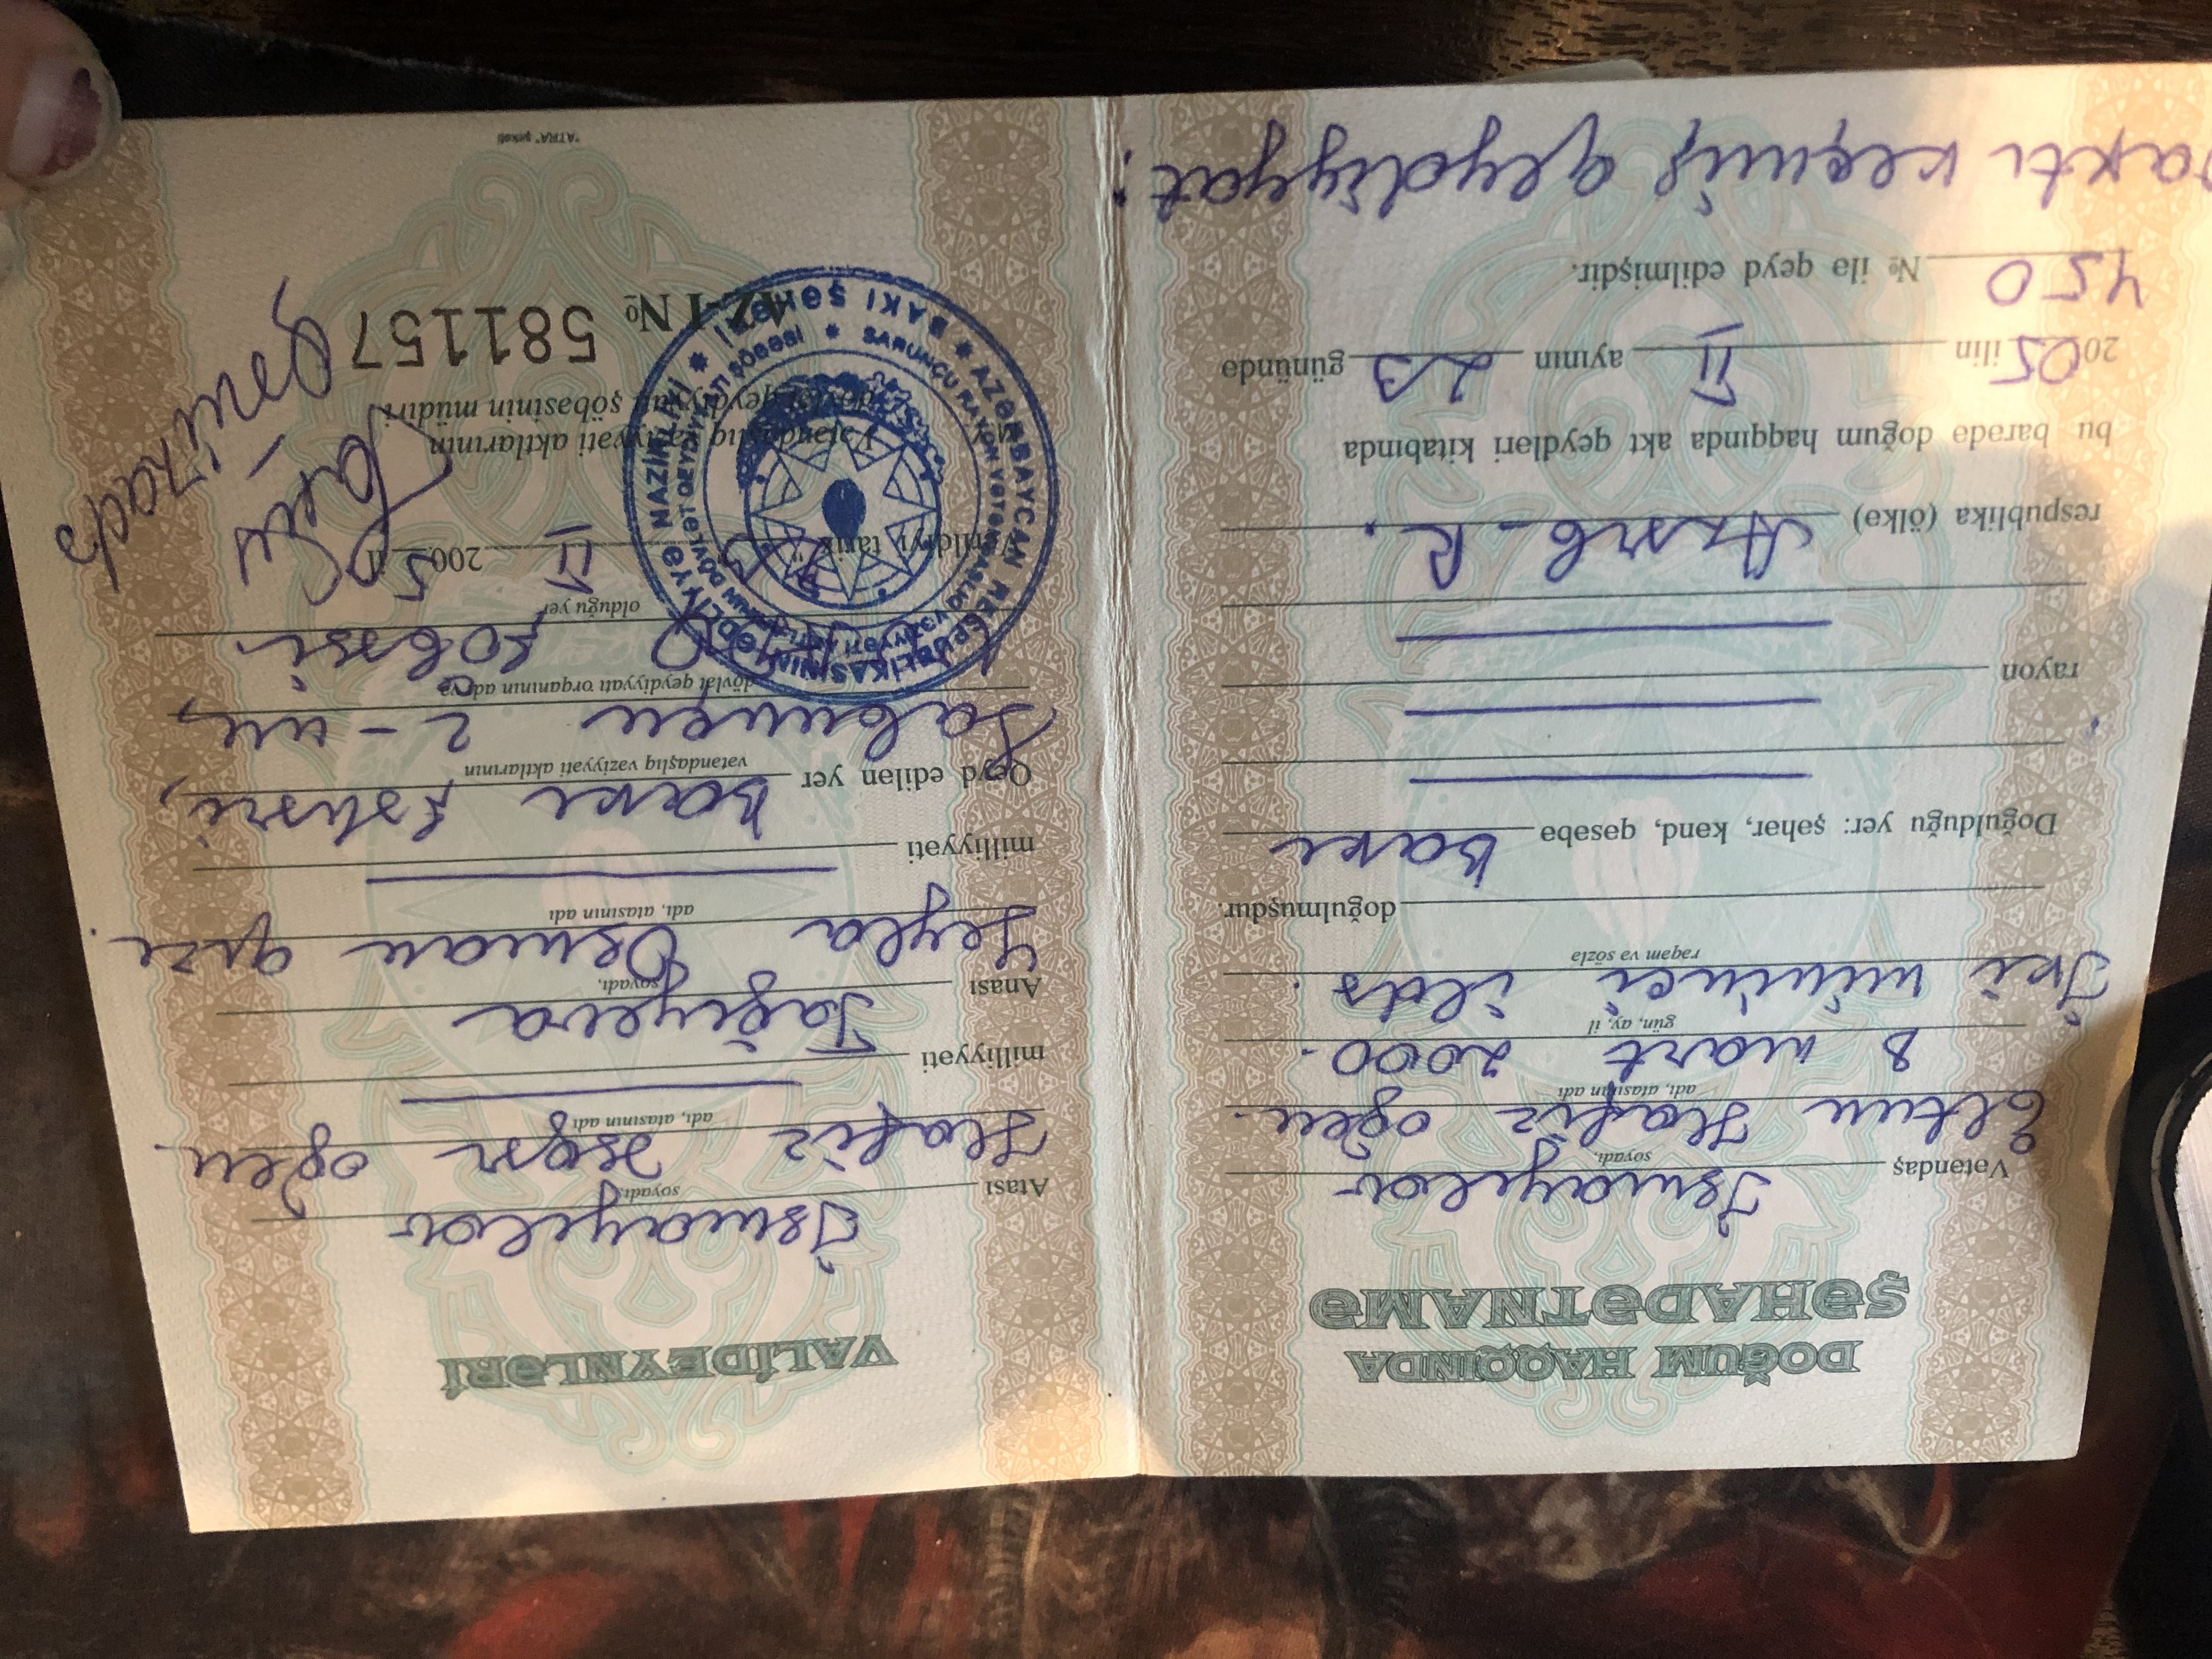 DOĞUM HAQQINDA
ŞƏHADƏTNAMƏ
Vətəndaş İsmayılov
soyadı,
Eltun Hafiz oğlu.
adı, atasının adı
8 mart 2000.
gün, ay, il
İki mininci ildə.
rəqəm və sözlə
doğulmuşdur.
Doğulduğu yer: şəhər, kənd, qəsəbə Bakı
rayon
respublika (ölkə) Azərb. R.
bu barədə doğum haqqında akt qeydləri kitabında
2005 ilin II ayının 23 günündə
450 № ilə qeyd edilmişdir.
vaxtı keçmiş qeydiyyat:
VALİDEYNLƏRİ
Atası İsmayılov
soyadı,
Hafiz Əsgər oğlu
adı, atasının adı
milliyyəti
Anası Tağıyeva
soyadı,
Leyla Osman qızı.
adı, atasının adı
milliyyəti
Qeyd edilən yer Bakı şəhəri,
vətəndaşlıq vəziyyəti aktlarının
Sabunçu 2-nu,
dövlət qeydiyyatı orqanının adı və
şöbəsi
olduğu yer
verildiyi tarix 23 II 2005
Vətəndaşlıq vəziyyəti aktlarının
dövlət qeydiyyatı şöbəsinin müdiri
AZ-I № 581157
AZƏRBAYCAN RESPUBLİKASININ ƏDLİYYƏ NAZİRLİYİ
BAKI ŞƏHƏR
SABUNÇU RAYON VƏTƏNDAŞLIQ VƏZİYYƏTİ AKTLARININ DÖVLƏT QEYDİYYATI ŞÖBƏSİ
"ATRA" şirkəti